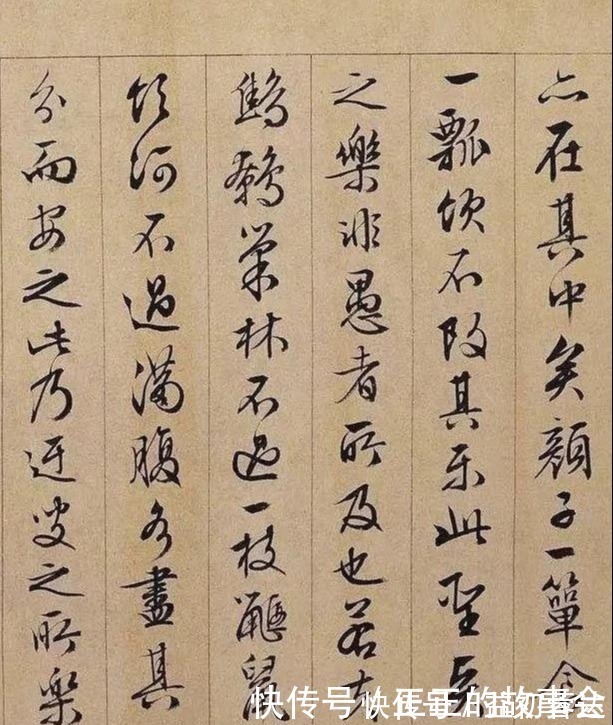 亦在其中矣顏子一簞食
一瓢飲不改其樂此聖賢
之樂非愚者所及也若夫
鷦鷯巢林不過一枝鼴鼠
飲河不過滿腹各盡其
分而安之此乃迂叟之所樂
快传号